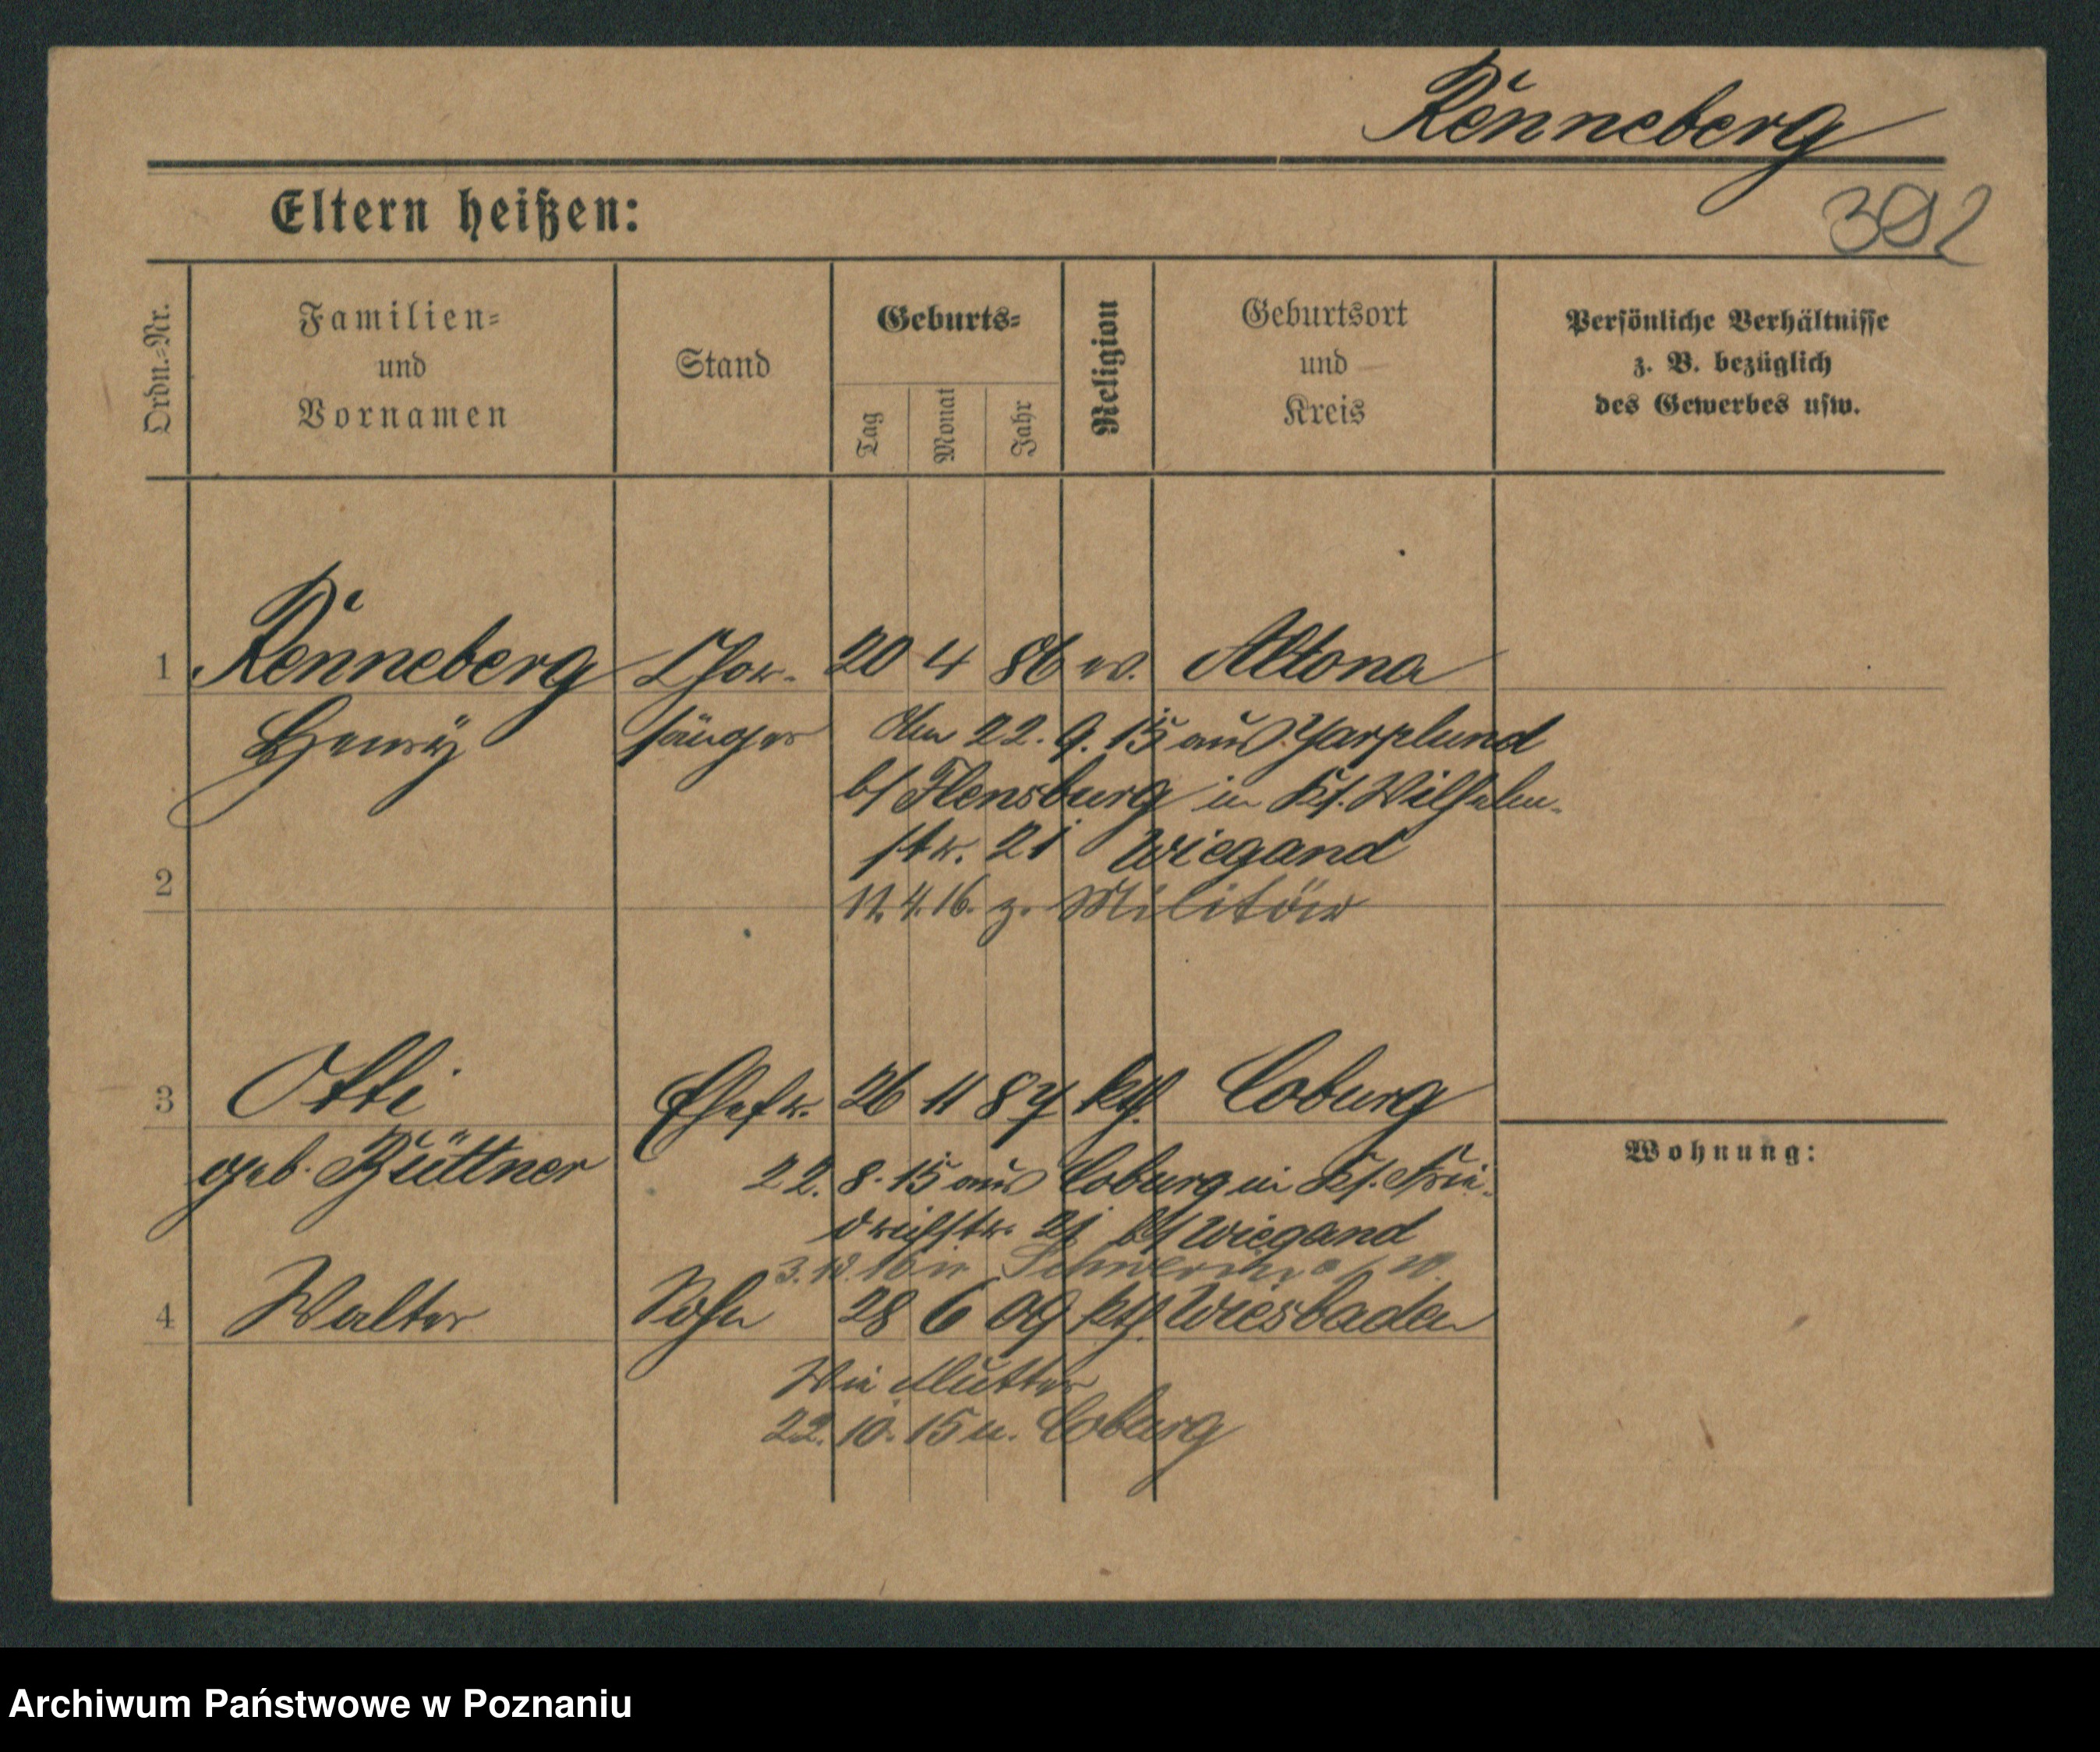 Renneberg
Eltern heißen:
392
Ordn.-Nr.
Familien-
und
Vornamen
Stand
Geburts-
Tag
Monat
Jahr
Religion
Geburtsort
und
Kreis
Persönliche Verhältnisse
z. B. bezüglich
des Gewerbes usw.
1 Renneberg Chor- 20 4 86 ev. Altona
Henry sänger Am 22. 9. 15 aus Jarplund
b/ Flensburg in Wilhelm-
str. 21 Wiegand
2 11.4.16. z. Militär
3 Otti Ehefr. 26 11 87 kth. Coburg
geb. Büttner 22. 8. 15 aus Coburg in Frie-
Wohnung:
drichstr. 21 b/ Wiegand
3. 12. 16 in Schwerin a/ W.
4 Walter Sohn 28 6 09 kth. Wiesbaden
Wie Mutter
22. 10. 15 n. Coburg
Archiwum Państwowe w Poznaniu